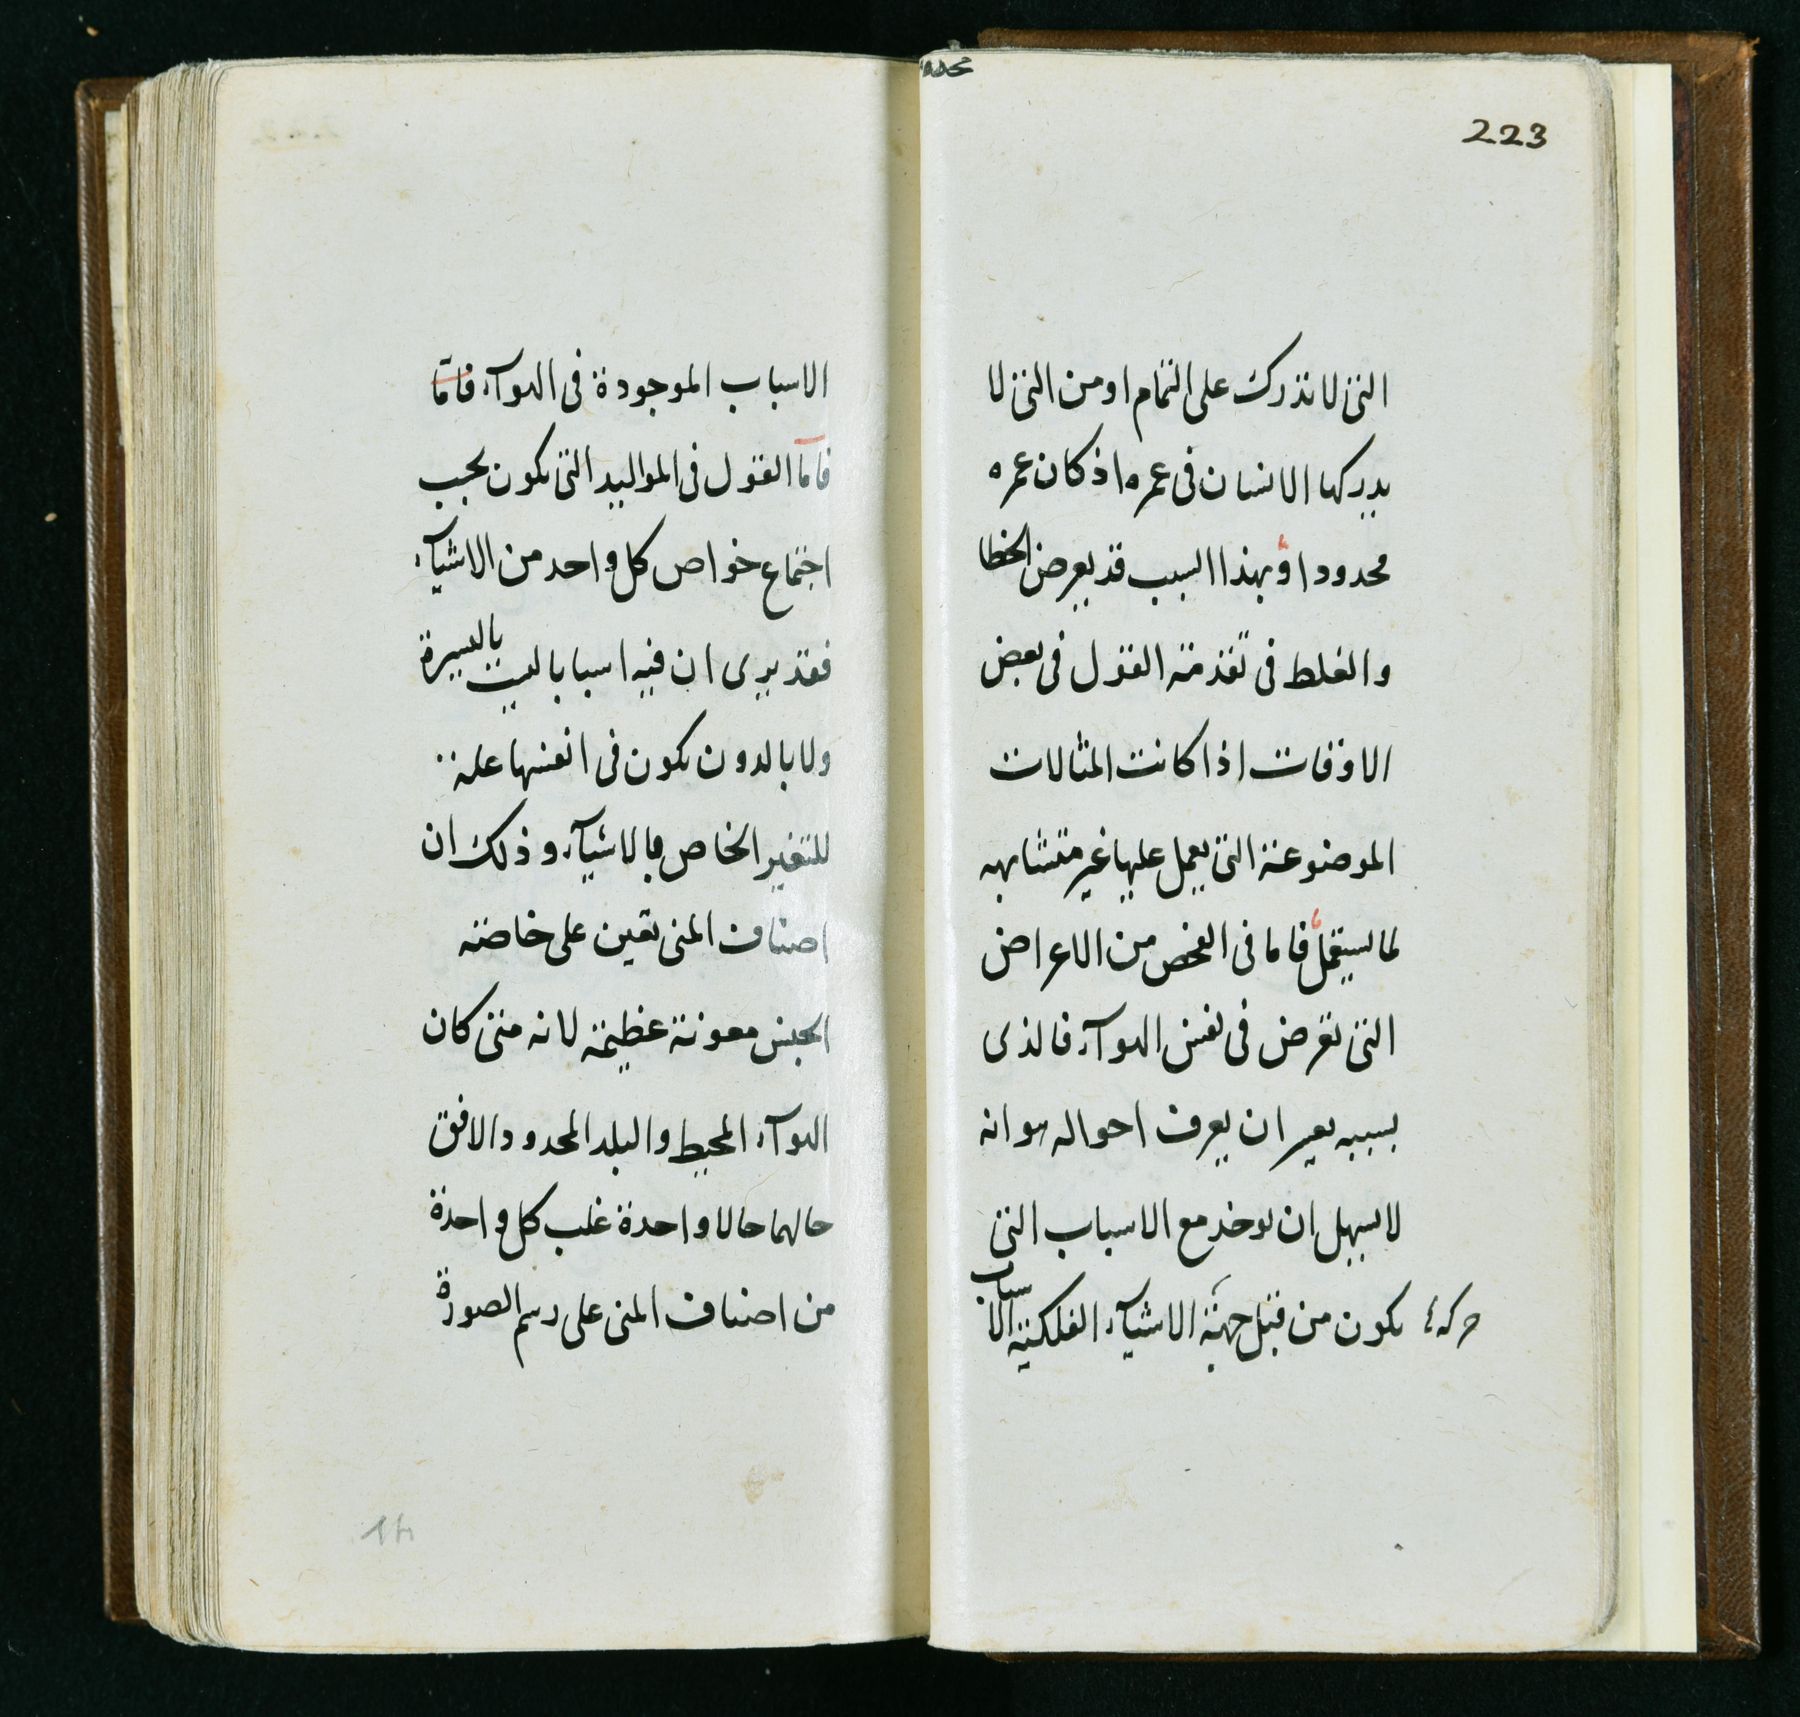 223
التى لا تدرك على التمام او من التى لا
يدركها الانسان فى عمره اذ كان عمره
محدودا وبهذا السبب قد يعرض الخطا
والغلط فى تقدمة القول فى بعض
الاوقات اذا كانت المثالات
الموضوعة التى يعمل عليها غير متشابهه
لما يستعمل فاما فى الفحص من الاعراض
التى تعرض فى نفس الهوآء فالذى
بسببه يعسر ان يعرف احواله هو انه
لا يسهل ان يوخذ مع الاسباب التى
حركة يكون من قبل جهة الاشيآء الفلكية الاسباب
الاسباب الموجودة فى الهوآء فامّا
فاما القول فى المواليد التى يكون بحسب
اجتماع خواص كل واحد من الاشيآء
فقد يرى ان فيه اسبابا ليست باليسيرة
ولا بالدون يكون فى انفسها علة
للتغير الخاص بالاشيآء وذلك ان
اصناف المنى تعين على خاصة
الجنس معونة عظيمة لانه متى كان
الهوآء المحيط والبلد المحدود الافق
حالهما حالا واحدة غلب كل واحدة
من اصناف المنى على رسم الصورة